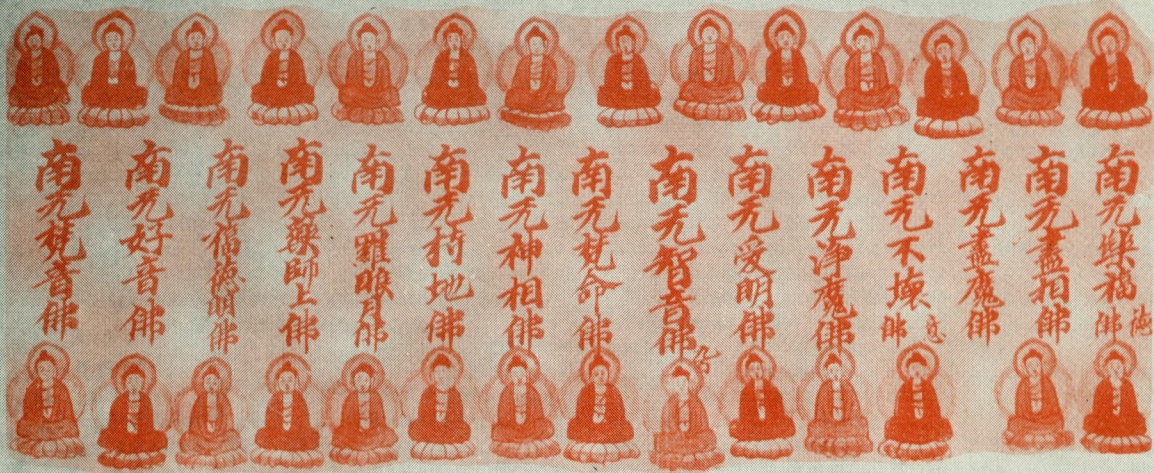 南无樂福德佛
南无盡相佛
南无盡魔佛
南无不壞意佛
南无淨魔佛
南无受明佛
南无智音佛
南无梵命佛
南无神相佛
南无持地佛
南无羅睺月佛
南无藥師上佛
南无福德明佛
南无好音佛
南无梵音佛